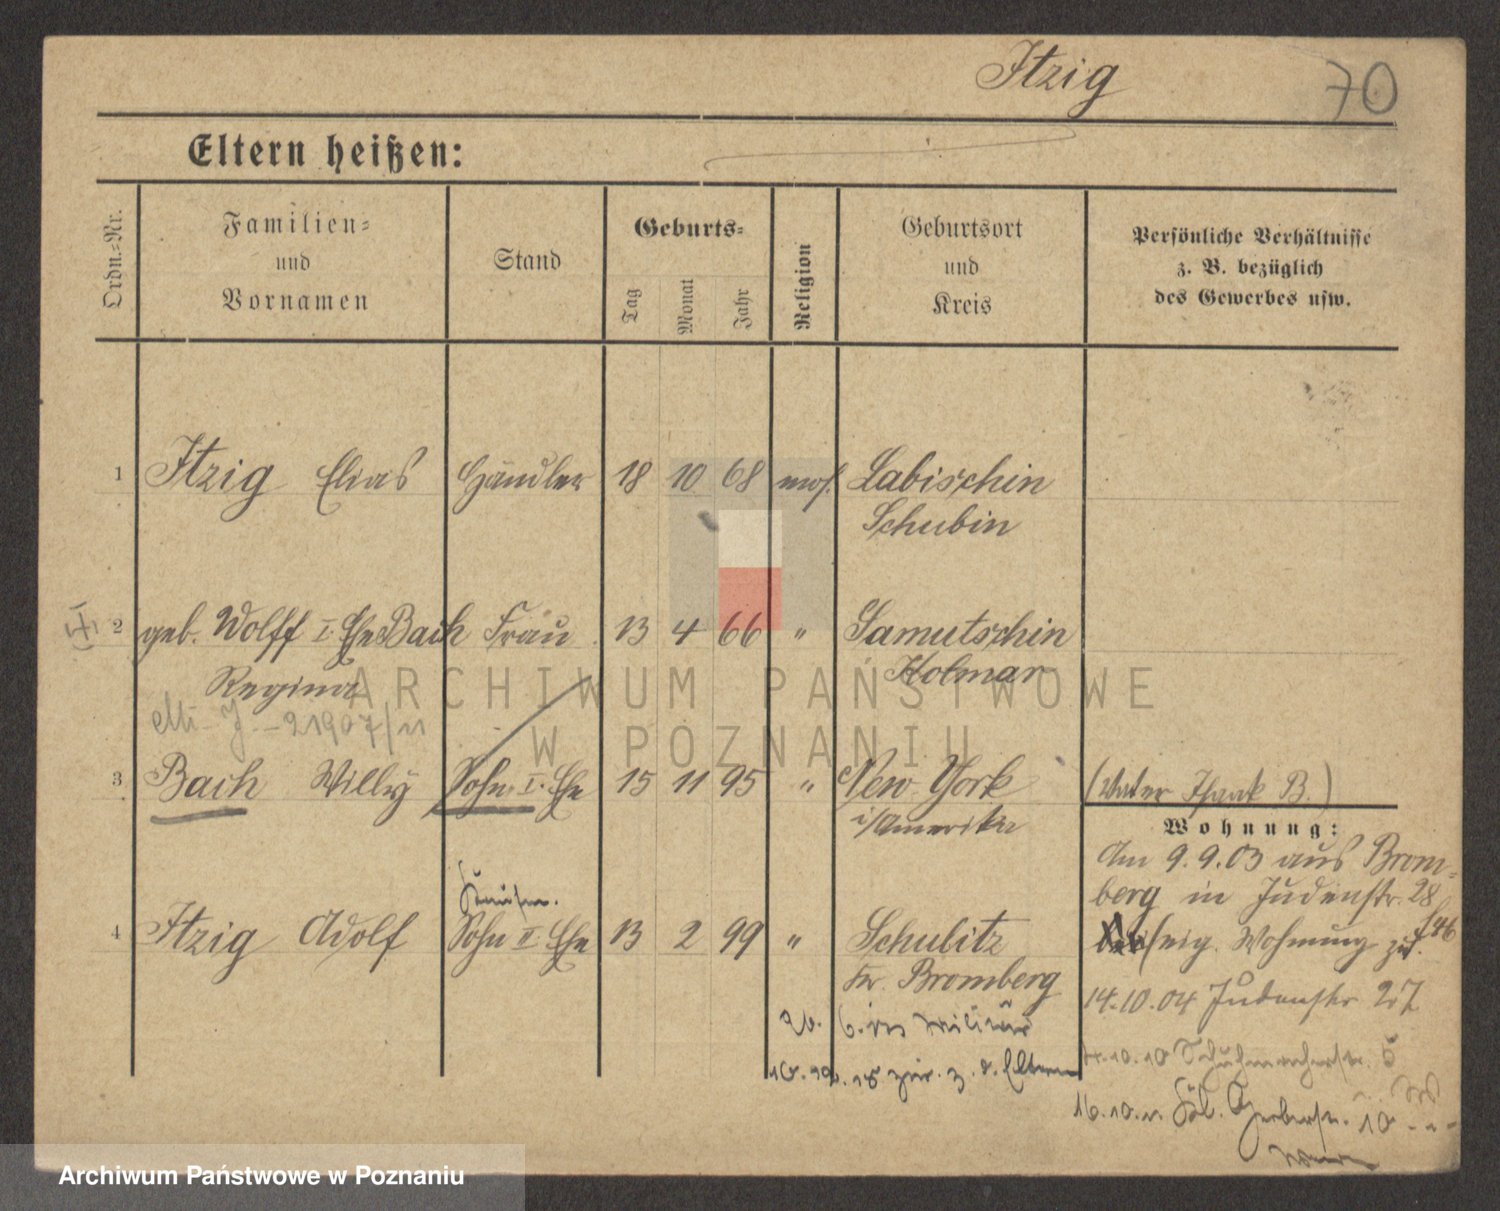 Itzig 70
Eltern heißen:
Ordn.-Nr.
Familien-
und
Vornamen
Stand
Geburts-
Tag
Monat
Jahr
Religion
Geburtsort
und
Kreis
Persönliche Verhältnisse
z. B. bezüglich
des Gewerbes usw.
1 Itzig Elias Händler 18 10 68 mos. Labischin
Schubin
2 geb. Wolff I. Ehe Bach Frau 13 4 66 " Samutschin
Regina Kolmar
21907/11
3 Bach Willy Sohn I. Ehe 15 11 95 " New York
i/Amerika
(Vater Isaak B.)
Wohnung:
Am 9.9.03 aus Brom-
berg in Judenstr. 28
Wohnung
4 Itzig Adolf Sohn II Ehe 13 2 99 " Schulitz
Kr. Bromberg
14.10.04 Judenstr 27
6. Militär
4.10.10 Schuhmacherstr. 5
z. d. Eltern
16.10.11 Gerberstr. 10
ARCHIWUM PAŃSTWOWE
W POZNANIU
Archiwum Państwowe w Poznaniu